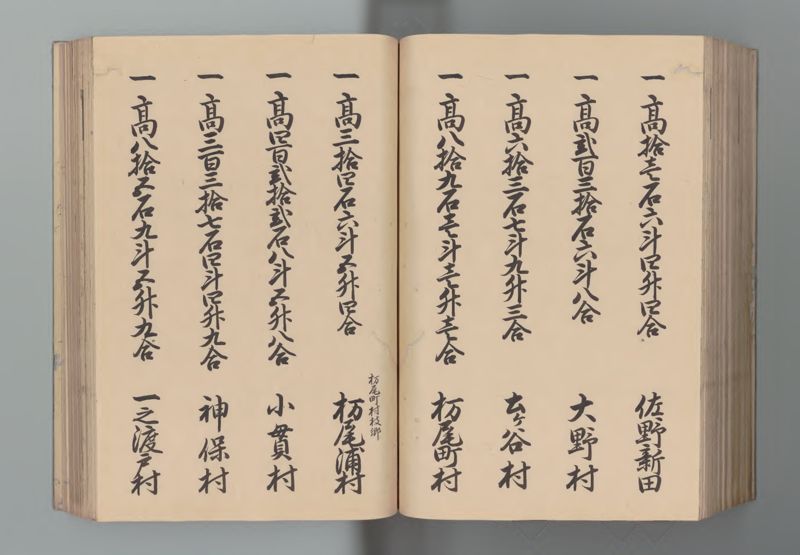 一 髙拾壱石六斗四升四合 佐野新田
一 髙弐百三拾石六斗八合 大野村
一 髙六拾三石七斗九升三合 土ヶ谷村
一 髙八拾九石壱斗壱升壱合 栃尾町村
栃尾町村枝郷
一 髙三拾四石六斗五升四合 栃尾浦村
一 髙四百弐拾弐石八斗五升八合 小貫村
一 髙三百三拾七石四斗四升九合 神保村
一 髙八拾五石九斗五升九合 一之渡戸村